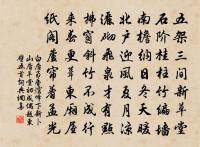 五架三間新草堂
石階桂柱竹編牆
南簷納日冬天暖
北戶迎風夏月涼
灑砌飛泉纔有點
拂窗斜竹不成行
來春更葺東廂屋
紙閣蘆簾著孟光
白居易香爐峰下新卜
山居草堂初成偶題東
壁五首詞典網集